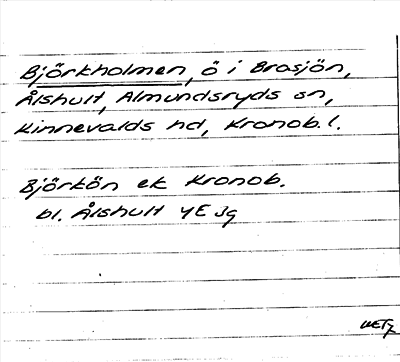 Björkholmen, ö i Brasjön,
Ålshult, Almundsryds sn,
Kinnevalds hd, Kronob. l.
Björkön ek Kronob.
bl. Ålshult 4E 3g